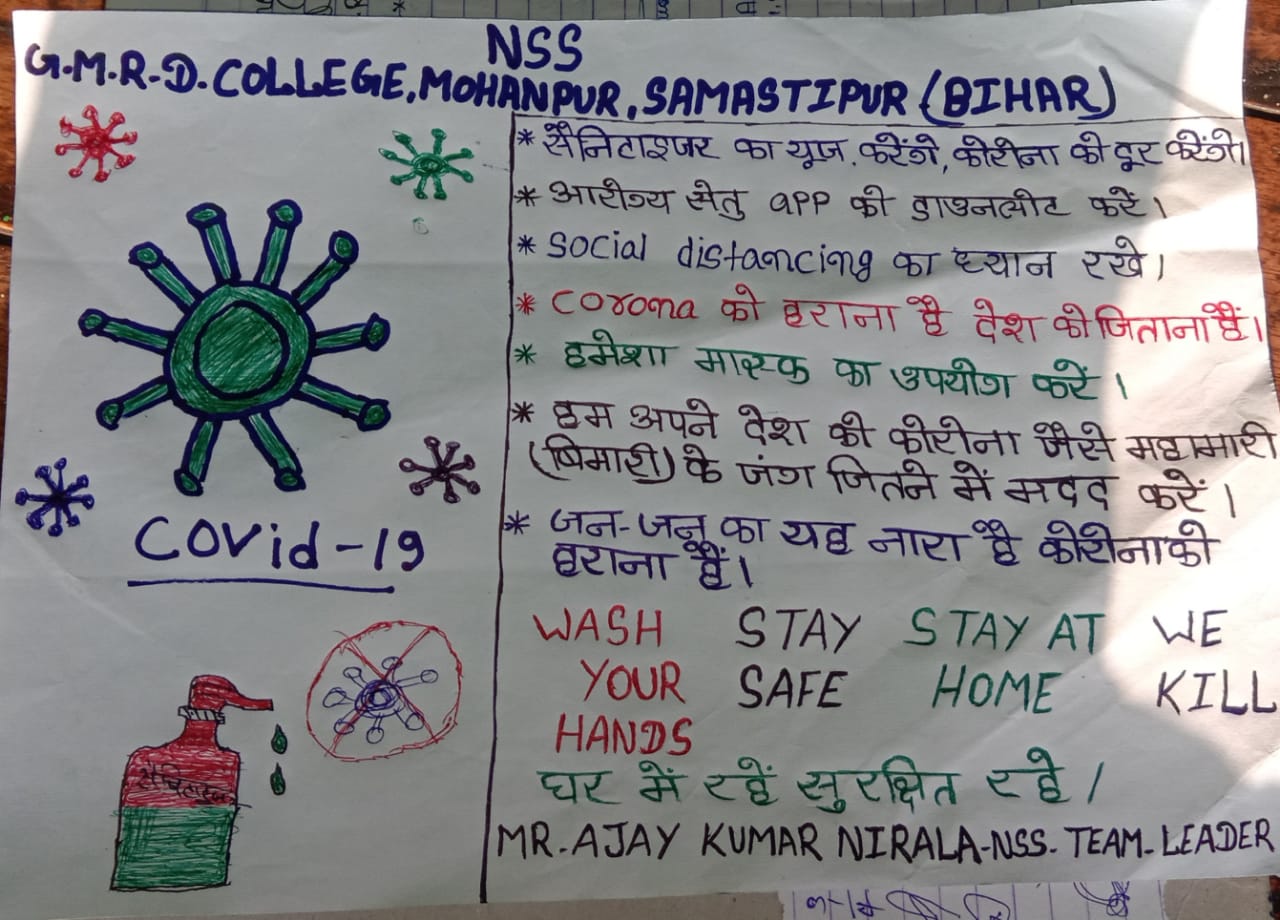 NSS
G.M.R.D. COLLEGE, MOHANPUR, SAMASTIPUR (BIHAR)
* सैनिटाइजर का यूज करेंगे, कोरोना को दूर करेंगे।
* आरोग्य सेतु app को डाउनलोट करें।
* Social distancing का ध्यान रखे।
* Corona को हराना है देश को जिताना हैं।
* हमेशा मास्क का उपयोग करें।
* हम अपने देश को कोरोना जैसे महामारी
(बिमारी) के जंग जितने में मदद करें।
* जन-जन का यह नारा है कोरोना को
हराना हैं।
Covid-19
WASH STAY STAY AT WE
YOUR SAFE HOME KILL
HANDS
घर में रहें सुरक्षित रहे।
MR. AJAY KUMAR NIRALA-NSS. TEAM. LEADER